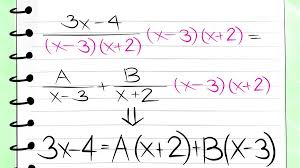 3x-4/(x-3)(x+2) (x-3)(x+2) =
A/x-3 + B/x+2 (x-3)(x+2)
⇓
3x-4=A(x+2)+B(x-3)